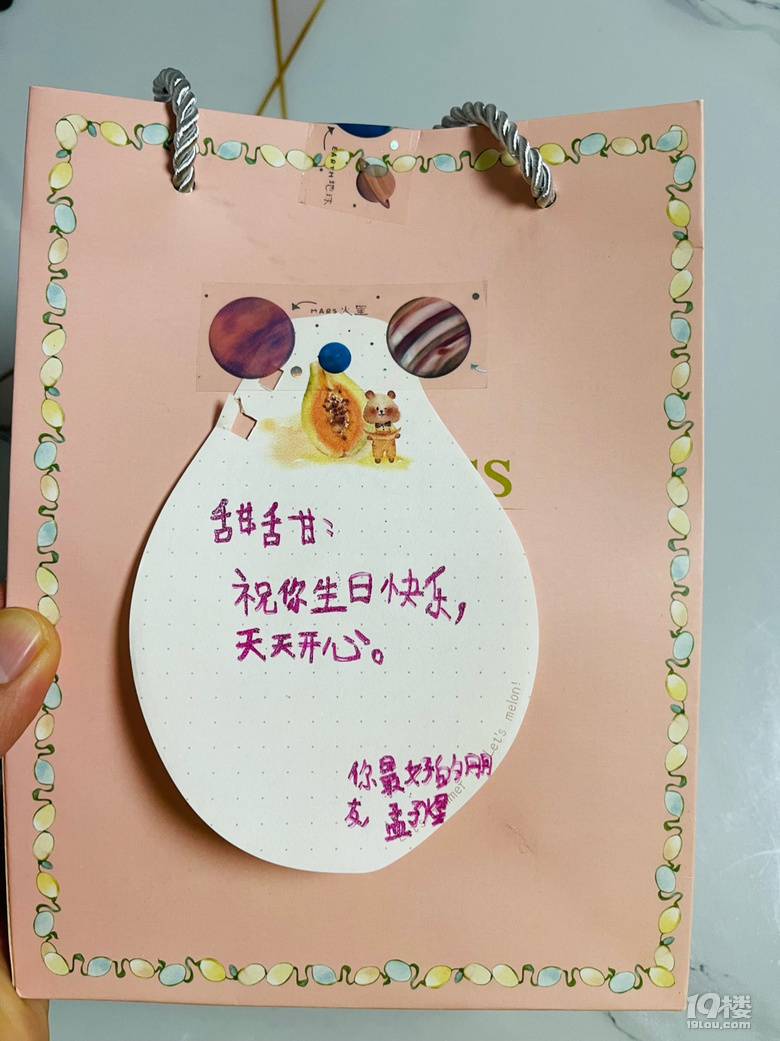 EARTH地球
MARS火星
SS
甜甜:
祝你生日快乐,
天天开心。
你最好的朋
友 孟
Let's melon!
19楼
19lou.com